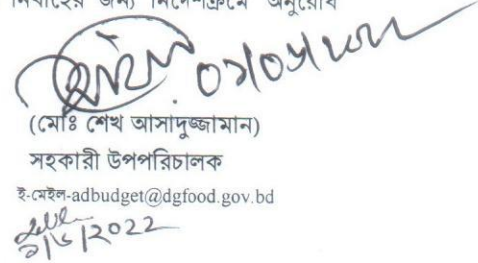 নির্বাহের জন্য নির্দেশক্রমে অনুরোধ
(মোঃ শেখ আসাদুজ্জামান)
সহকারী উপপরিচালক
ই-মেইল-adbudget@dgfood.gov.bd
৯/৬/2022